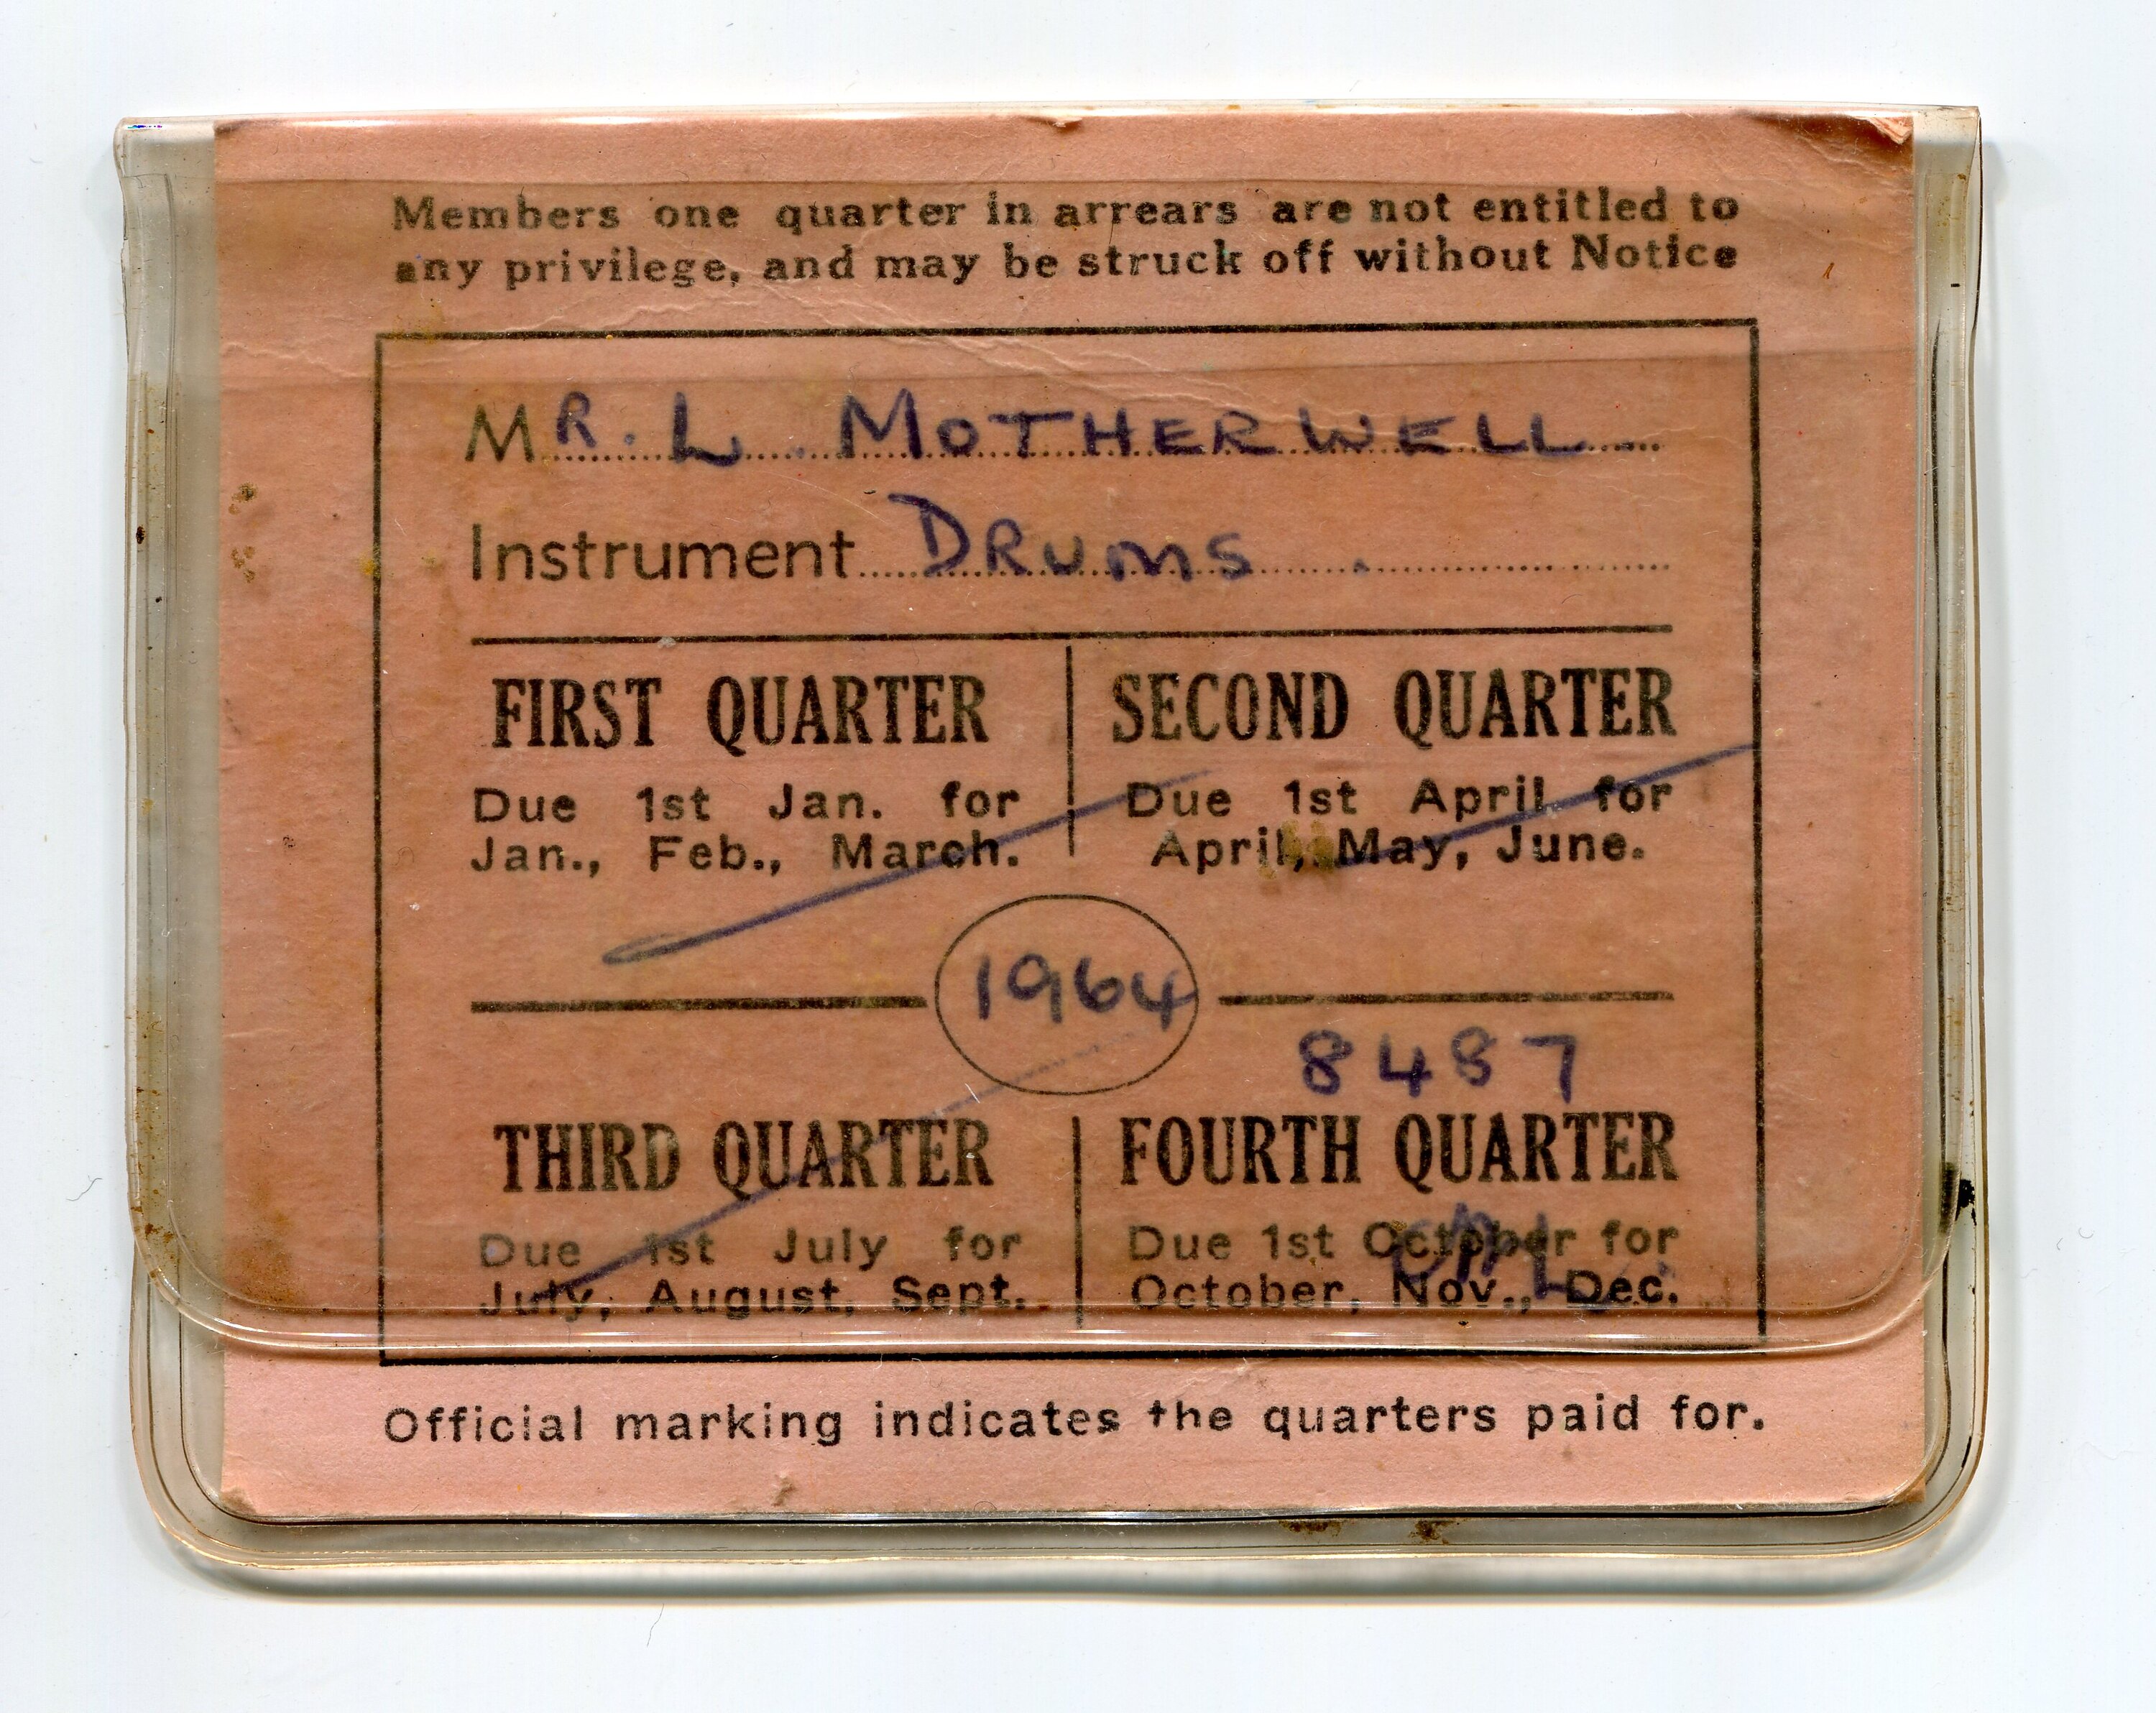 Members one quarter in arrears are not entitled to
any privilege, and may be struck off without Notice
MR. L. MOTHERWELL
Instrument DRUMS
FIRST QUARTER
Due 1st Jan. for
Jan., Feb., March.
SECOND QUARTER
Due 1st April for
April, May, June.
1964
8487
THIRD QUARTER
Due 1st July for
July, August, Sept.
FOURTH QUARTER
Due 1st October for
October, Nov., Dec.
Official marking indicates the quarters paid for.